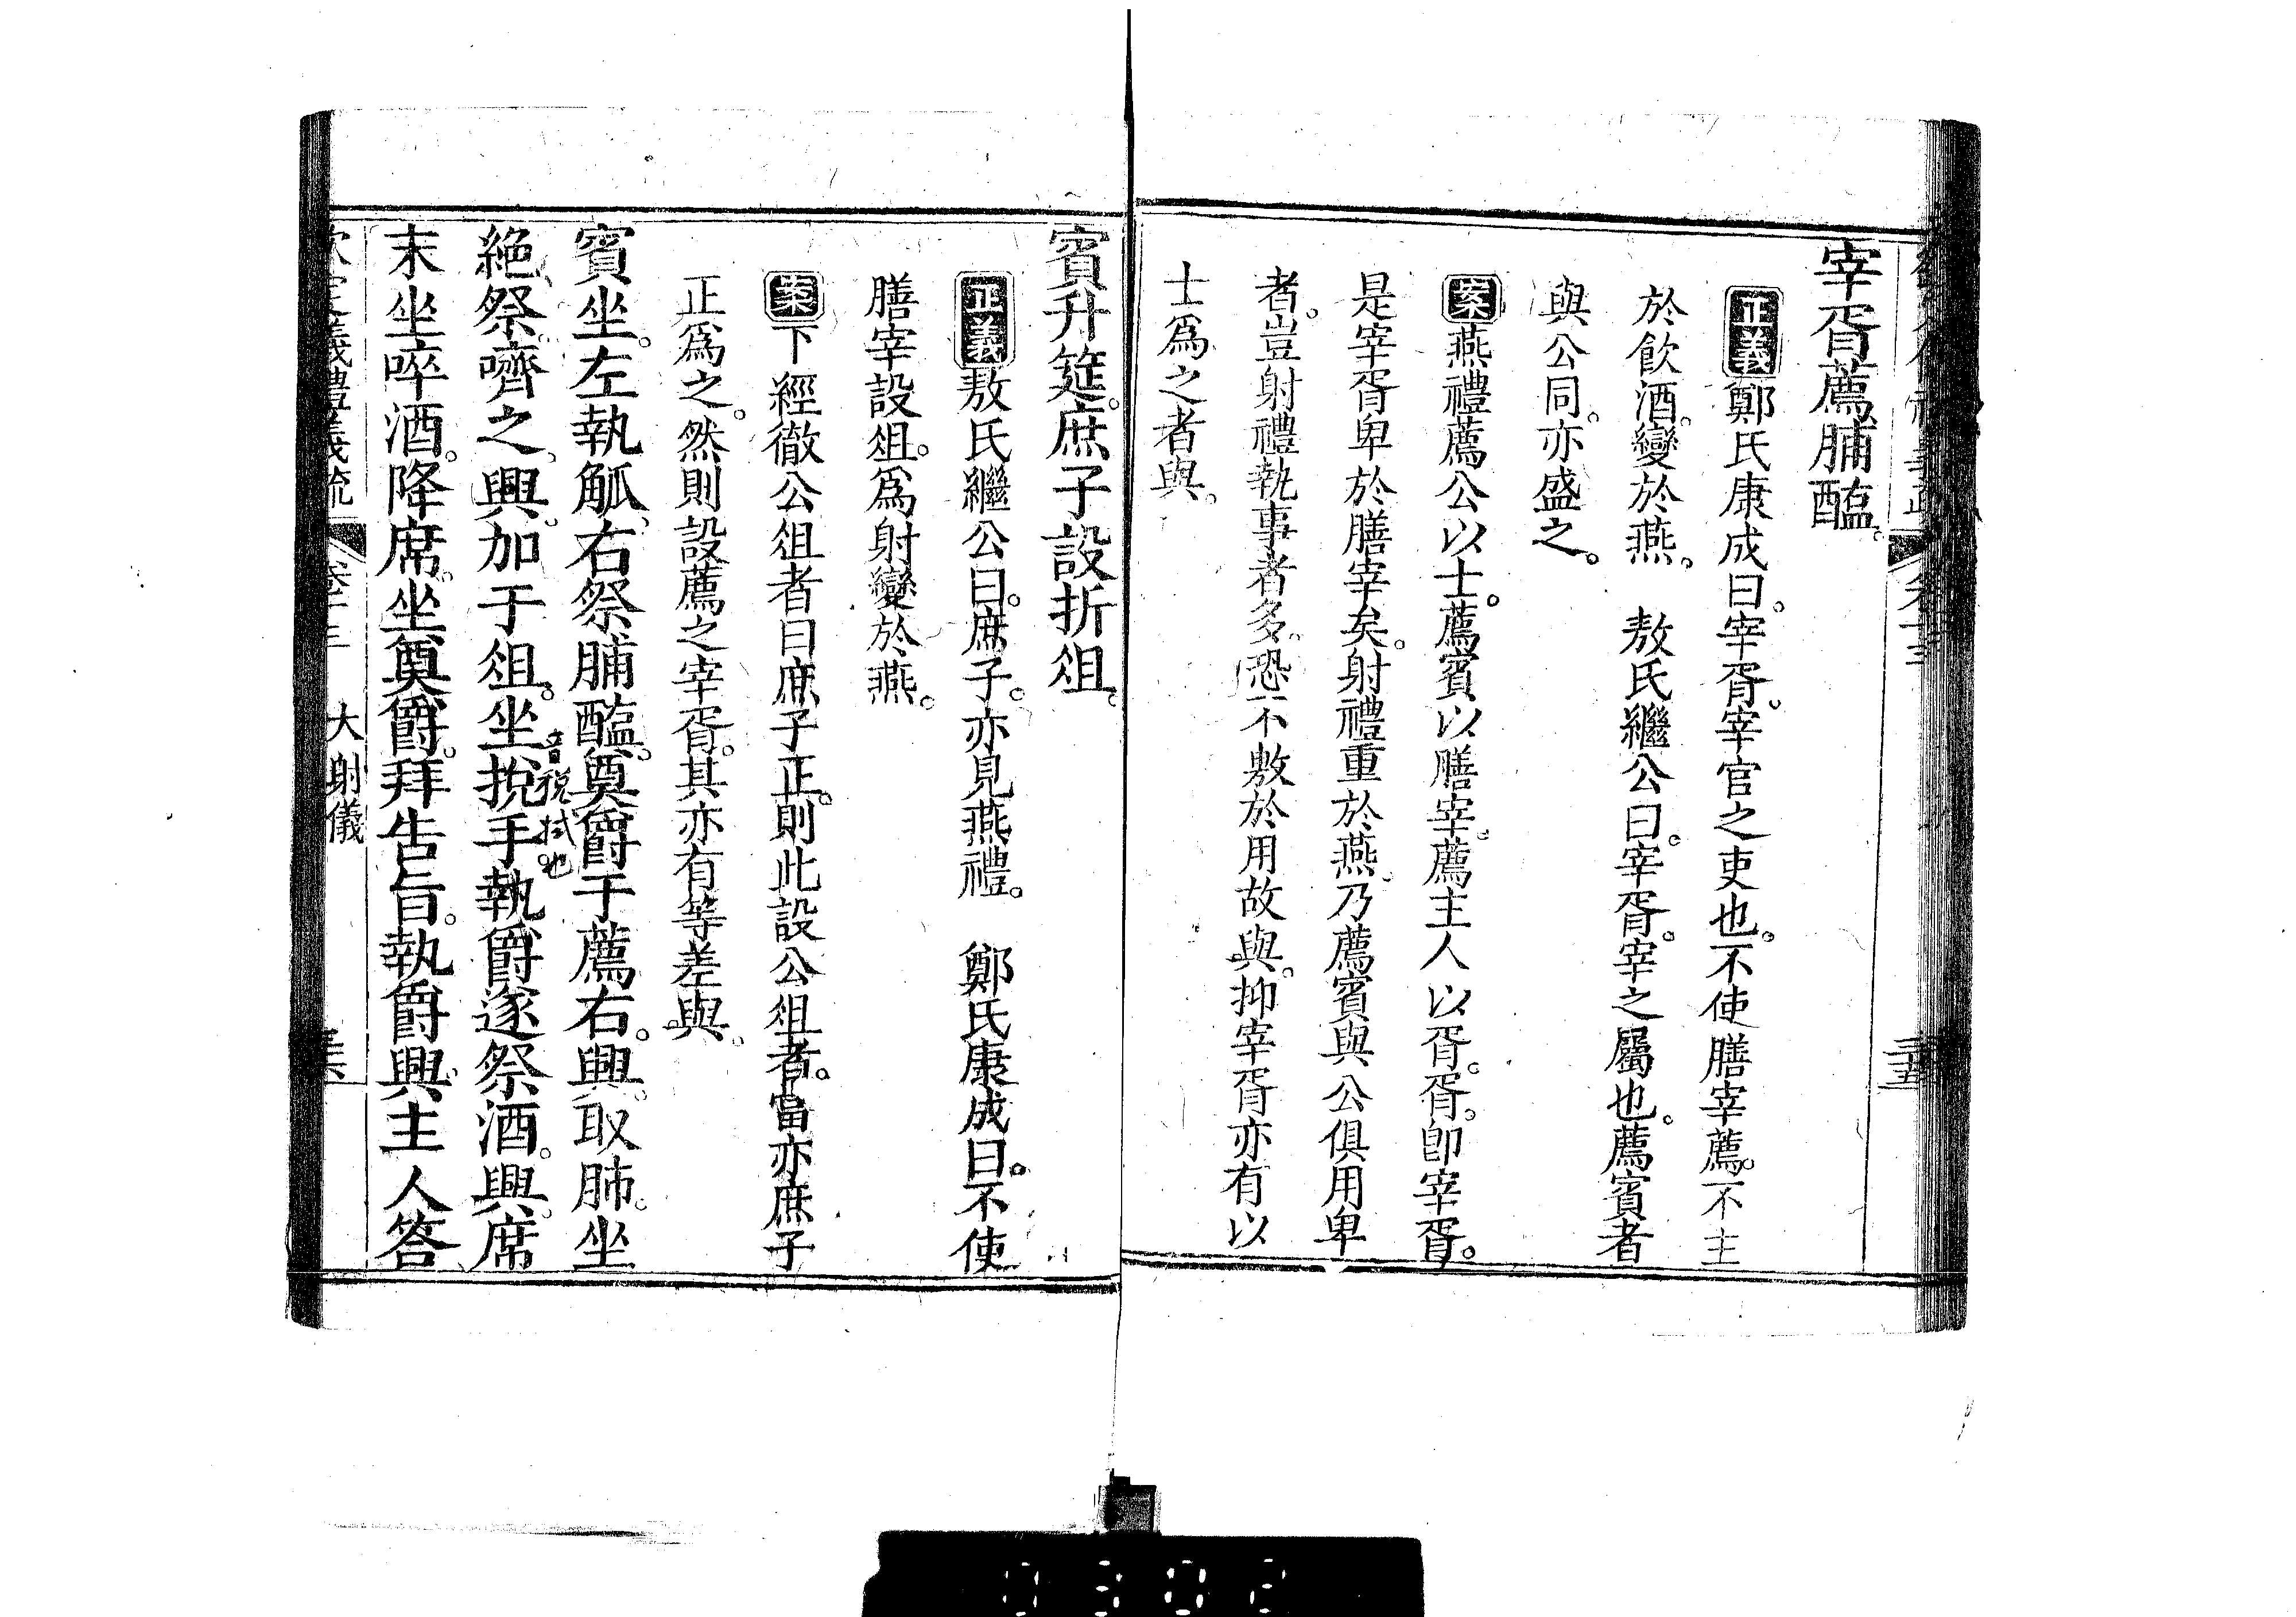 宰胥薦脯醢。
正義鄭氏康成曰。宰胥。宰官之吏也。不使膳宰薦。不主
於飲酒。變於燕。　敖氏繼公曰。宰胥。宰之屬也。薦賓者
與公同。亦盛之。
案燕禮薦公以士。薦賓以膳宰。薦主人以胥。胥。卽宰胥。
是宰胥卑於膳宰矣。射禮重於燕。乃薦賓與公俱用卑
者。豈射禮執事者多。恐不敷於用故與。抑宰胥亦有以
士爲之者與。
賓升筵。庶子設折俎。
正義敖氏繼公曰。庶子。亦見燕禮。　鄭氏康成曰。不使
膳宰設俎。爲射變於燕。
案下經徹公俎者曰庶子正。則此設公俎者。當亦庶子
正爲之。然則設薦之宰胥。其亦有等差與。
賓坐。左執觚。右祭脯醢。奠爵于薦右。興。取肺。坐
絶祭。嚌之。興。加于俎。坐挩手。執爵。遂祭酒。興。席
音稅拭也
末坐啐酒。降席。坐奠爵。拜告旨。執爵興。主人答
欽定儀禮義疏　卷十三　大射儀